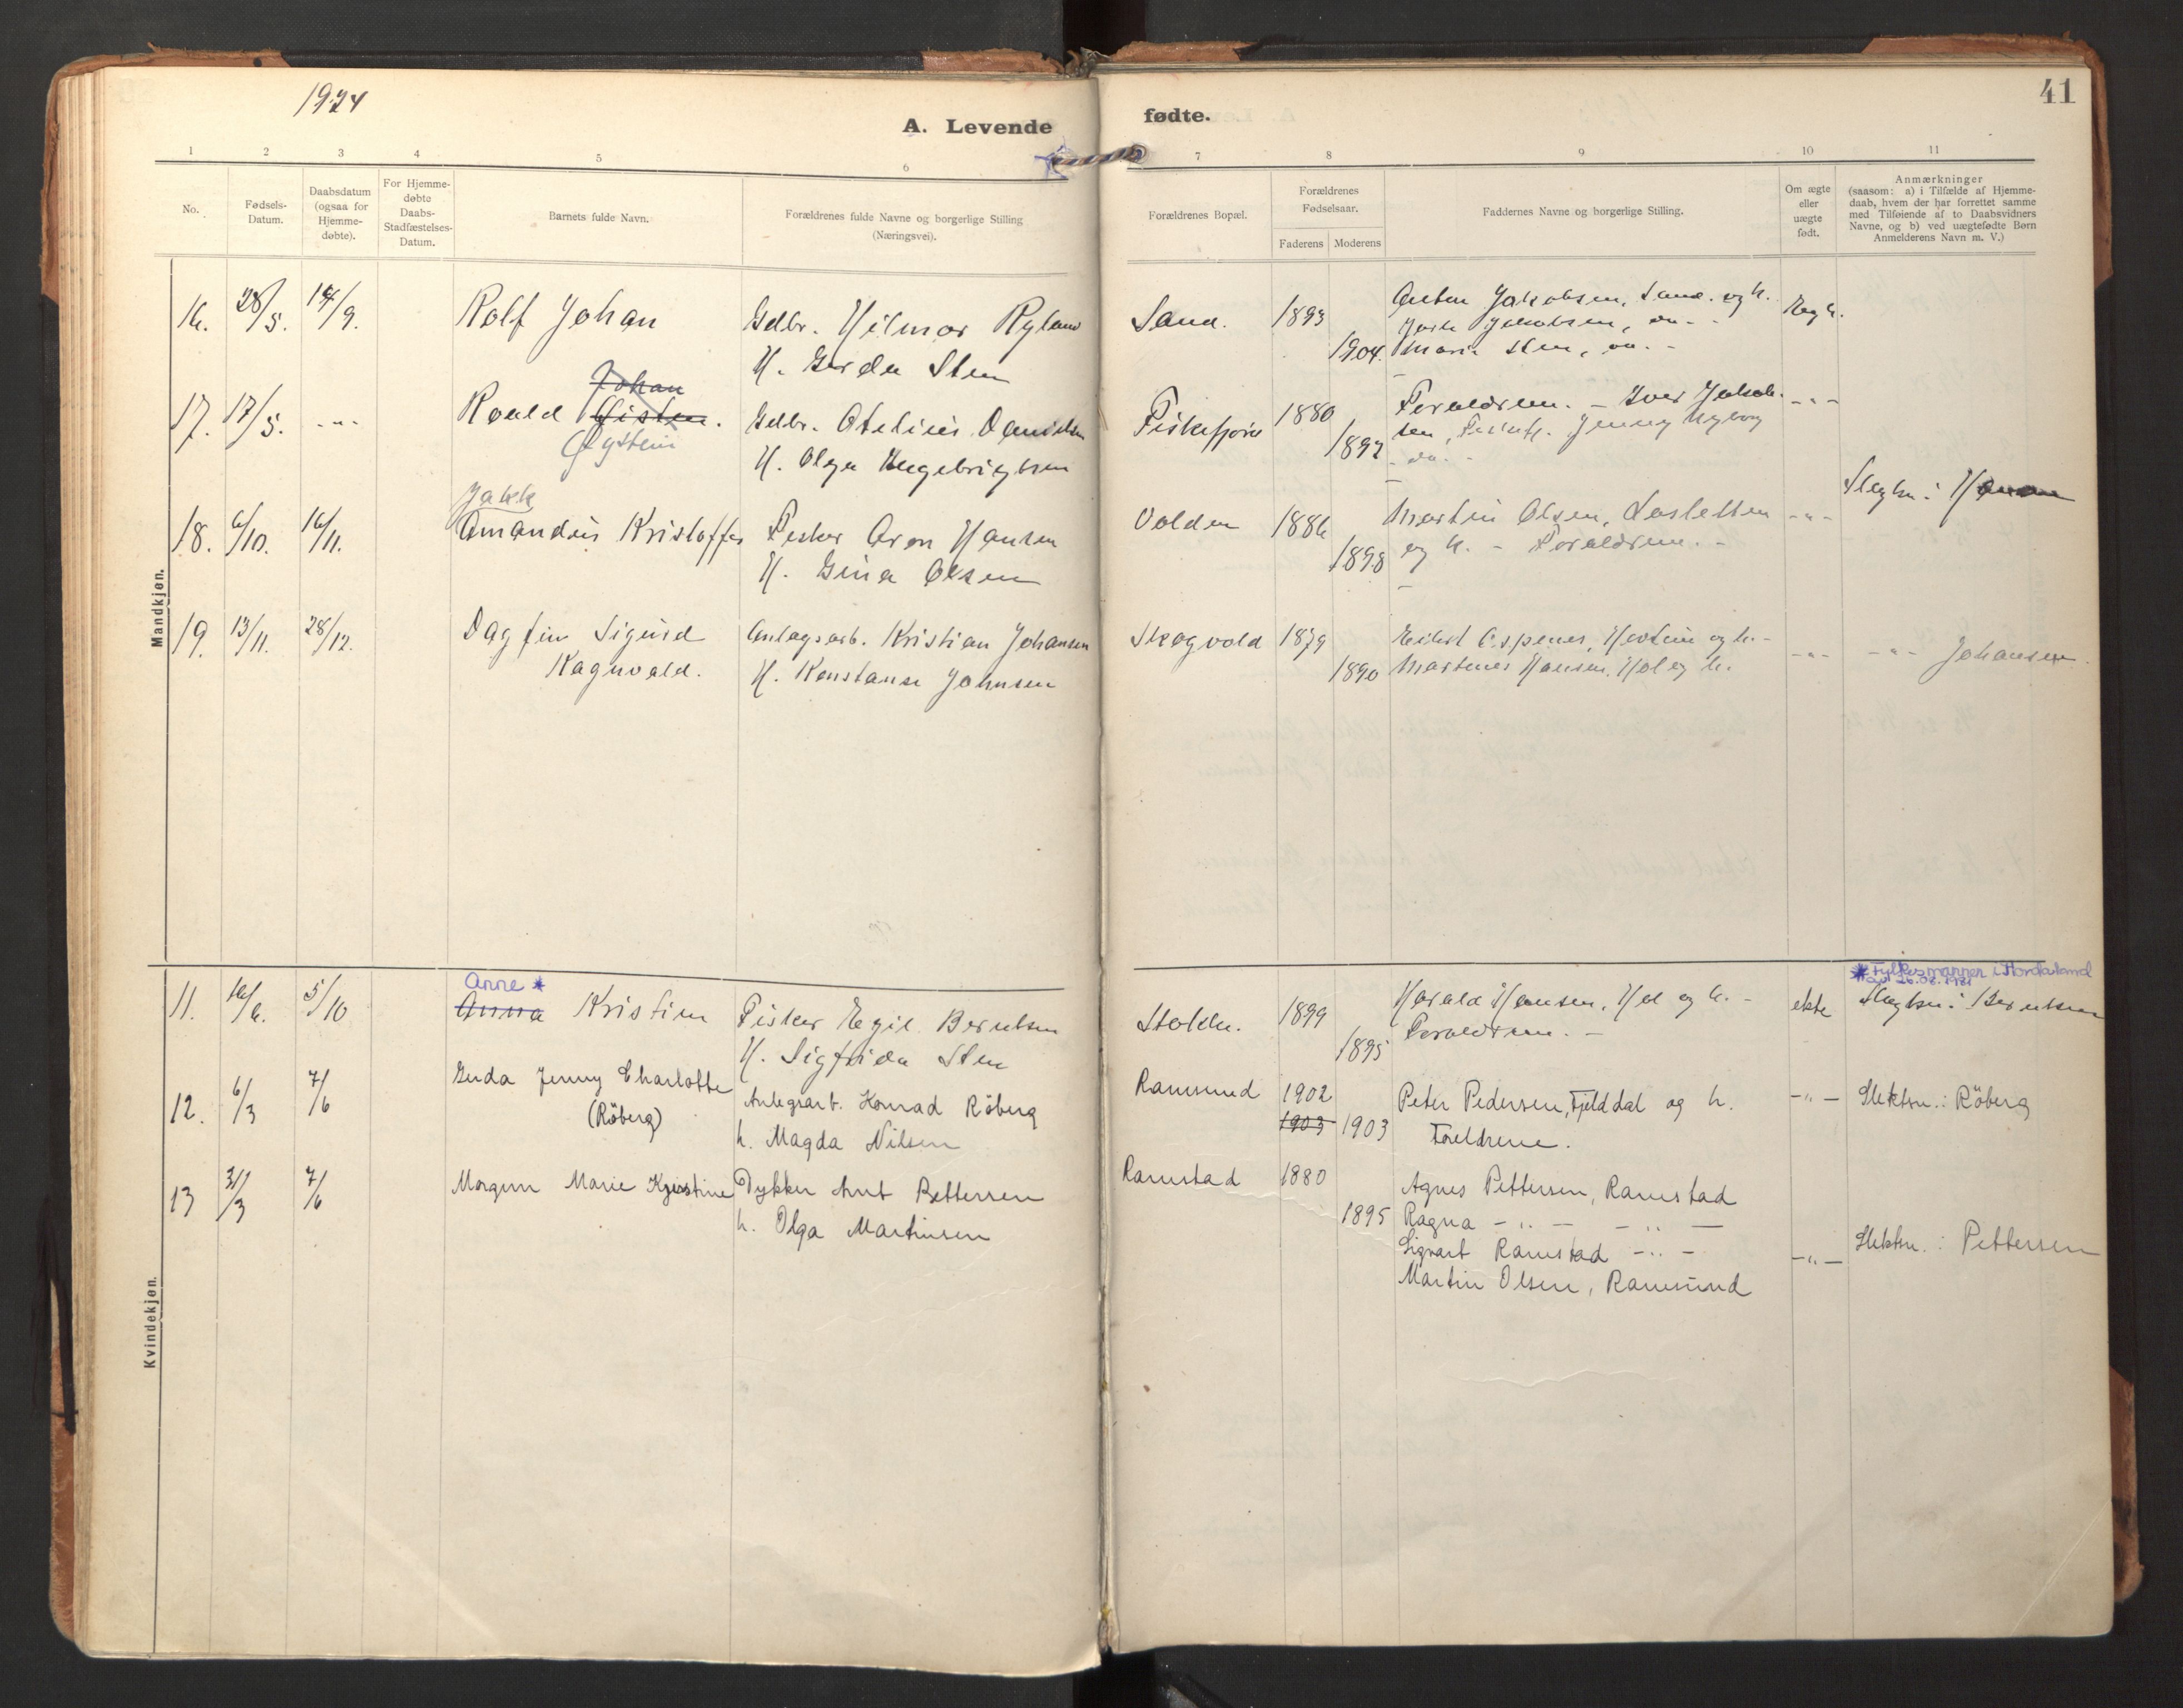 1924
41
A. Levende fødte.
1 2 3 4 5 6 7 8 9 10 11
No.
Fødsels-
Datum.
Daabsdatum
(ogsaa for
Hjemme-
døbte).
For Hjemme-
døbte
Daabs-
Stadfæstelses-
Datum.
Barnets fulde Navn.
Forældrenes fulde Navne og borgerlige Stilling
(Næringsvei).
Forældrenes Bopæl.
Forældrenes
Fødselsaar.
Faderens Moderens
Faddernes Navne og borgerlige Stilling.
Om ægte
eller
uægte
født.
Anmærkninger
(saasom: a) i Tilfælde af Hjemme-
daab, hvem der har forrettet samme
med Tilføiende af to Daabsvidners
Navne, og b) ved uægtefødte Børn
Anmelderens Navn m. V.)
Mandkjøn.
16. 28/5. 14/9. Rolf Johan
Gdbr. Hilmar Ryland
H. Gerda Sten
Sand. 1893
1904.
Anton Jakobsen, Sand. og h.
Jakobsen, do. -
Marie Sten, do. -
17. 17/5. -"-
Johan
Roald Øisten.
Øystein
Gdbr. Otelius Danielsen
H. Olga Ingebrigtsen
Fiskefjord 1880
1892
Forældrene. - Iver Jakob-
sen, Fiskefj. Jenny Nyborg
- do. -
-"-
18. 6/10. 16/11.
Jakk
Amandus Kristoffer
Fisker Aron Hansen
H. Gina Olsen
Volden 1886
1898
Martin Olsen,
og h. - Forældrene. -
-"-
Slegtsn: Hansen
19. 13/11. 28/12.
Dagfin Sigurd
Ragnvald.
Anlegsarb. Kristian Johansen
H. Konstanse Johnsen
Skogvold 1879
1890
Espenes, og h. -
Martines Hansen, Hol og h.
-"- -"- Johansen.
Kvindekjøn.
11. 16/6. 5/10
Anne *
Anna Kristine
Fisker Egil Berntsen
H. Sigfrida Sten
Stokke. 1899
1895
Harald Hansen, Hol og h. -
Forældrene. -
ekte
* Fylkesmannen i Hordaland
26.08.1981
Slegtsn: Berntsen
12. 6/3 7/6
Gerda Jenny Charlotte
(Röberg)
Anlegsarb. Konrad Röberg
h. Magda Nilsen
Ramsund 1902
1903 1903
Peter Pedersen, Fjelddal og h.
Foreldrene.
-"- Slektsn.: Röberg
13 31/3 7/6
Morgunn Marie Kristine
Dykker Arnt Pettersen
h. Olga Martinsen
Ramstad 1880
1895
Agnes Pettersen, Ramstad
Ragna -"- -"-
Sigvart Ramstad -"-
Martin Olsen, Ramsund
-"- Slektsn.: Pettersen